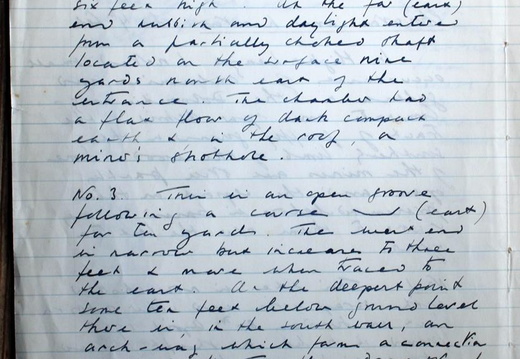 six feet high. At the far (east)
end rubbish and daylight enters
from a partially choked shaft
located on the surface nine
yards north east of the
entrance. The chamber had
a flat floor of dark compact
earth & in the roof, a
miner's shothole.
No. 3. This is an open groove
following a course (east)
for ten yards. The west end
is narrow but increases to three
feet & more when traced to
the east. At the deepest point
some ten feet below ground level
there is, in the south wall, an
arch-way which forms a connection